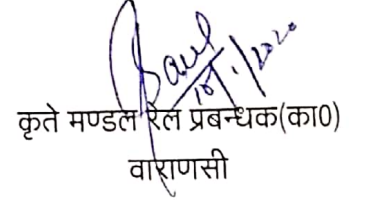 10/1/2020
कृते मण्डल रेल प्रबन्धक(का0)
वाराणसी